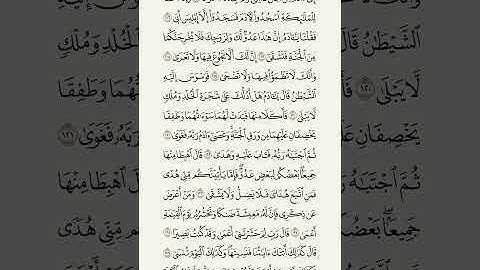 لِلْمَلَٰٓئِكَةِ ٱسْجُدُوا۟ لِءَادَمَ فَسَجَدُوٓا۟ إِلَّآ إِبْلِيسَ أَبَىٰ ١١٦
فَقُلْنَا يَٰٓـَٔادَمُ إِنَّ هَٰذَا عَدُوٌّ لَّكَ وَلِزَوْجِكَ فَلَا يُخْرِجَنَّكُمَا
مِنَ ٱلْجَنَّةِ فَتَشْقَىٰٓ ١١٧ إِنَّ لَكَ أَلَّا تَجُوعَ فِيهَا وَلَا تَعْرَىٰ ١١٨
وَأَنَّكَ لَا تَظْمَؤُا۟ فِيهَا وَلَا تَضْحَىٰ ١١٩ فَوَسْوَسَ إِلَيْهِ
ٱلشَّيْطَٰنُ قَالَ يَٰٓـَٔادَمُ هَلْ أَدُلُّكَ عَلَىٰ شَجَرَةِ ٱلْخُلْدِ وَمُلْكٍ
لَّا يَبْلَىٰ ١٢٠ فَأَكَلَا مِنْهَا فَبَدَتْ لَهُمَا سَوْءَٰتُهُمَا وَطَفِقَا
يَخْصِفَانِ عَلَيْهِمَا مِن وَرَقِ ٱلْجَنَّةِ وَعَصَىٰٓ ءَادَمُ رَبَّهُۥ فَغَوَىٰ ١٢١
ثُمَّ ٱجْتَبَٰهُ رَبُّهُۥ فَتَابَ عَلَيْهِ وَهَدَىٰ ١٢٢ قَالَ ٱهْبِطَا مِنْهَا
جَمِيعًۢا بَعْضُكُمْ لِبَعْضٍ عَدُوٌّ فَإِمَّا يَأْتِيَنَّكُم مِّنِّى هُدًى
فَمَنِ ٱتَّبَعَ هُدَاىَ فَلَا يَضِلُّ وَلَا يَشْقَىٰ ١٢٣ وَمَنْ أَعْرَضَ
عَن ذِكْرِى فَإِنَّ لَهُۥ مَعِيشَةً ضَنكًا وَنَحْشُرُهُۥ يَوْمَ ٱلْقِيَٰمَةِ
أَعْمَىٰ ١٢٤ قَالَ رَبِّ لِمَ حَشَرْتَنِىٓ أَعْمَىٰ وَقَدْ كُنتُ بَصِيرًا ١٢٥
قَالَ كَذَٰلِكَ أَتَتْكَ ءَايَٰتُنَا فَنَسِيتَهَا وَكَذَٰلِكَ ٱلْيَوْمَ تُنسَىٰ ١٢٦